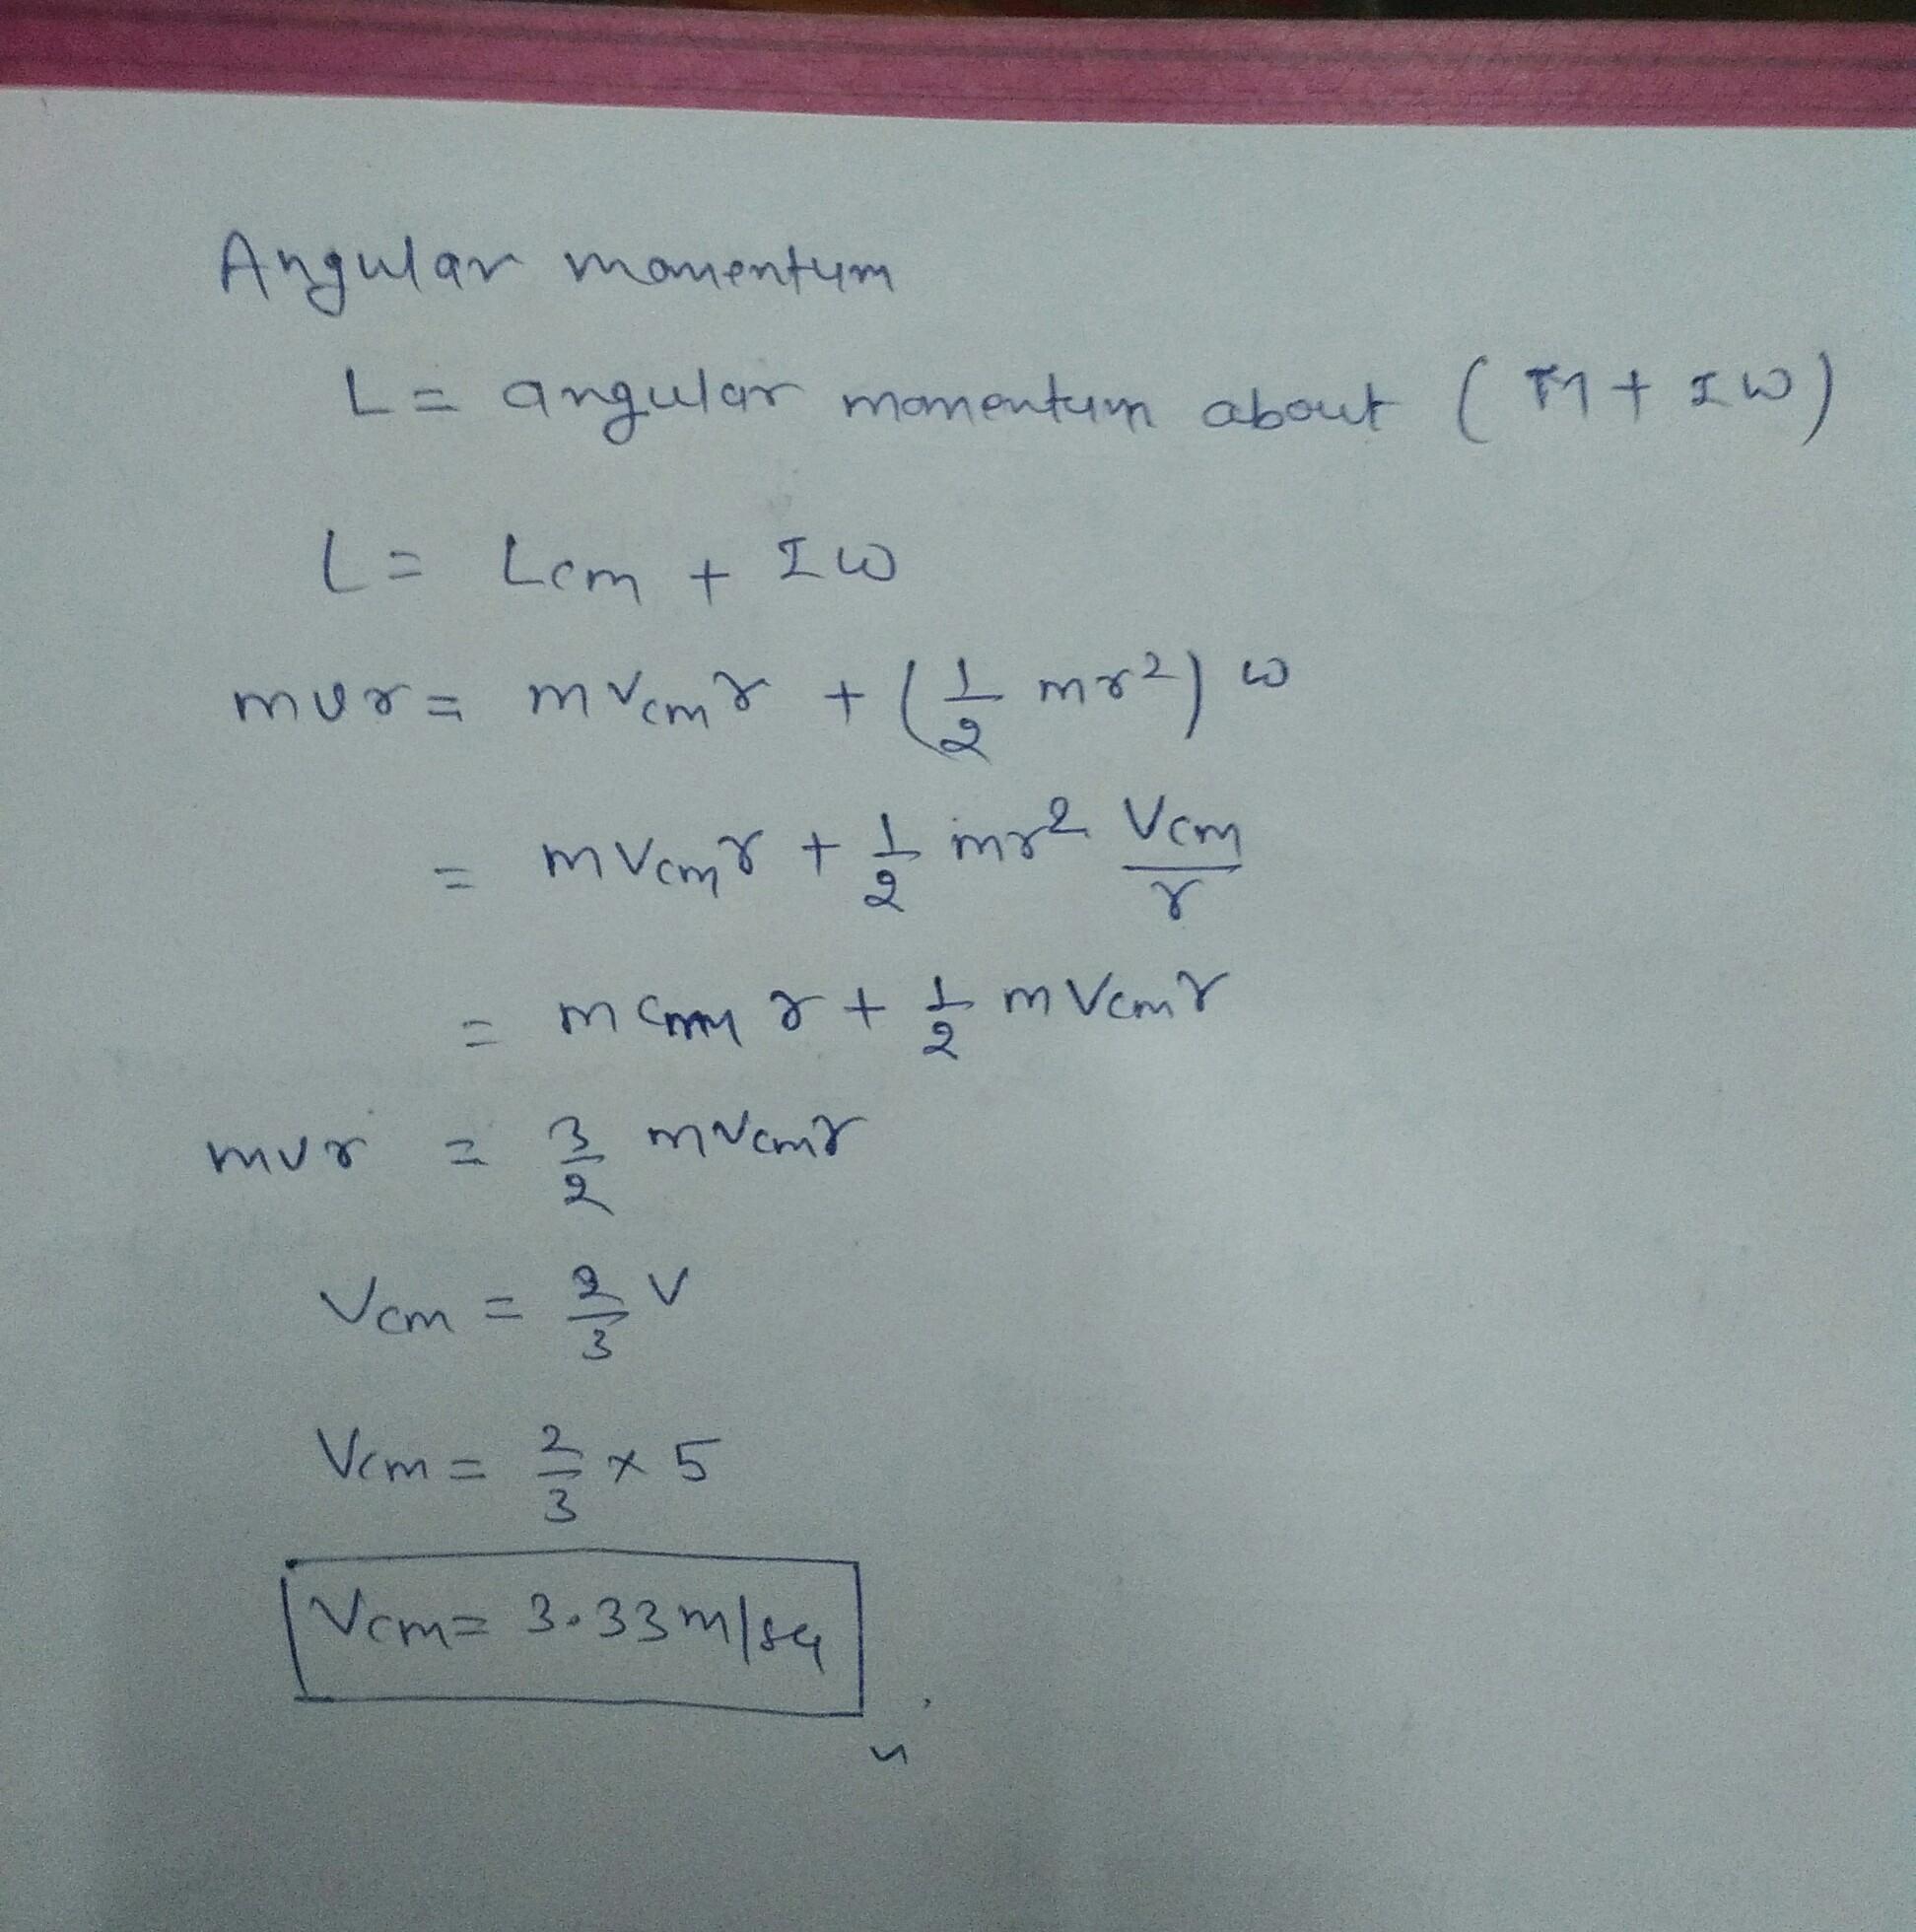 Angular momentum
L = angular momentum about ( + Iω)
L = Lcm + Iω
mvr = mvcmr + (1/2 mr²) ω
= mvcmr + 1/2 mr² Vcm/r
= m r + 1/2 mVcmr
mvr = 3/2 mvcmr
Vcm = 2/3 V
Vcm = 2/3 × 5
Vcm = 3.33 m/sec